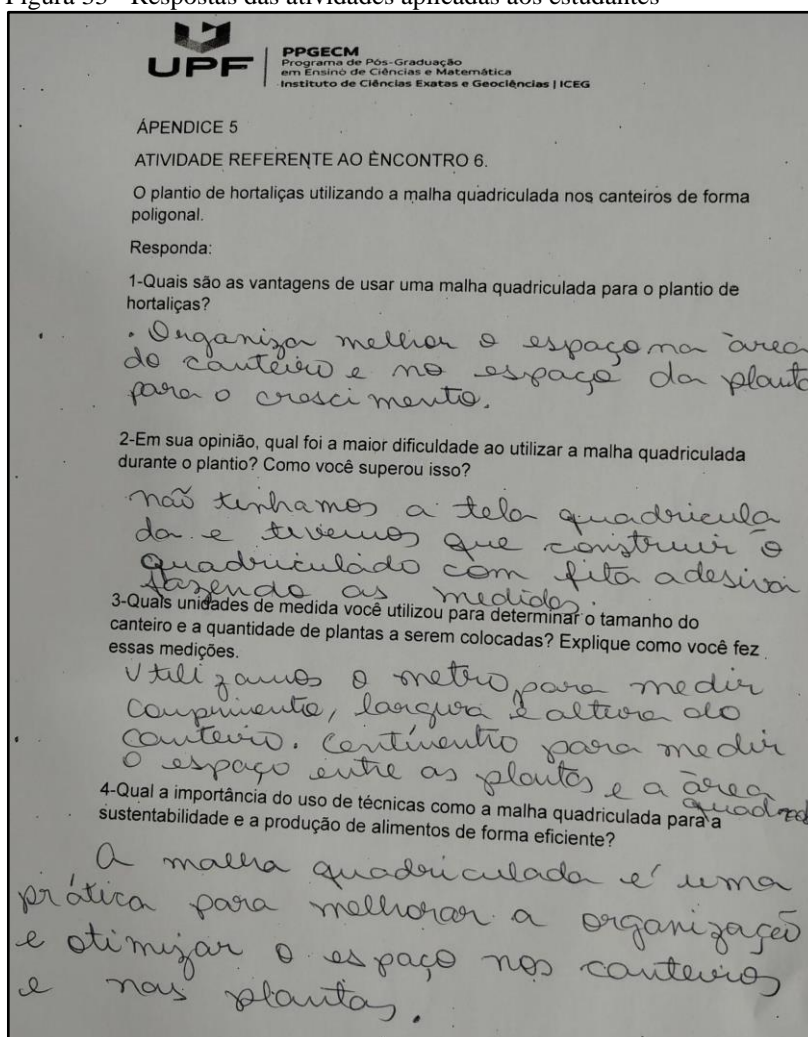 Figura 33 - Respostas das atividades aplicadas aos estudantes
UPF
PPGECM
Programa de Pós-Graduação
em Ensino de Ciências e Matemática
Instituto de Ciências Exatas e Geociências | ICEG
ÁPENDICE 5
ATIVIDADE REFERENTE AO ENCONTRO 6.
O plantio de hortaliças utilizando a malha quadriculada nos canteiros de forma
poligonal.
Responda:
1-Quais são as vantagens de usar uma malha quadriculada para o plantio de
hortaliças?
. Organizar melhor o espaço na área
do canteiro e no espaço da planta
para o crescimento.
2-Em sua opinião, qual foi a maior dificuldade ao utilizar a malha quadriculada
durante o plantio? Como você superou isso?
não tinhamos a tela quadricula
da e tivemos que construir o
quadriculado com fita adesiva
fazendo as medidas.
3-Quais unidades de medida você utilizou para determinar o tamanho do
canteiro e a quantidade de plantas a serem colocadas? Explique como você fez
essas medições.
Utilizamos o metro para medir
comprimento, largura e altura do
canteiro. Centímentro para medir
o espaço entre as plantas e a área
4-Qual a importância do uso de técnicas como a malha quadriculada para a
sustentabilidade e a produção de alimentos de forma eficiente?
A malha quadriculada é uma
prática para melhorar a organização
e otimizar o espaço nos canteiros
e nas plantas.